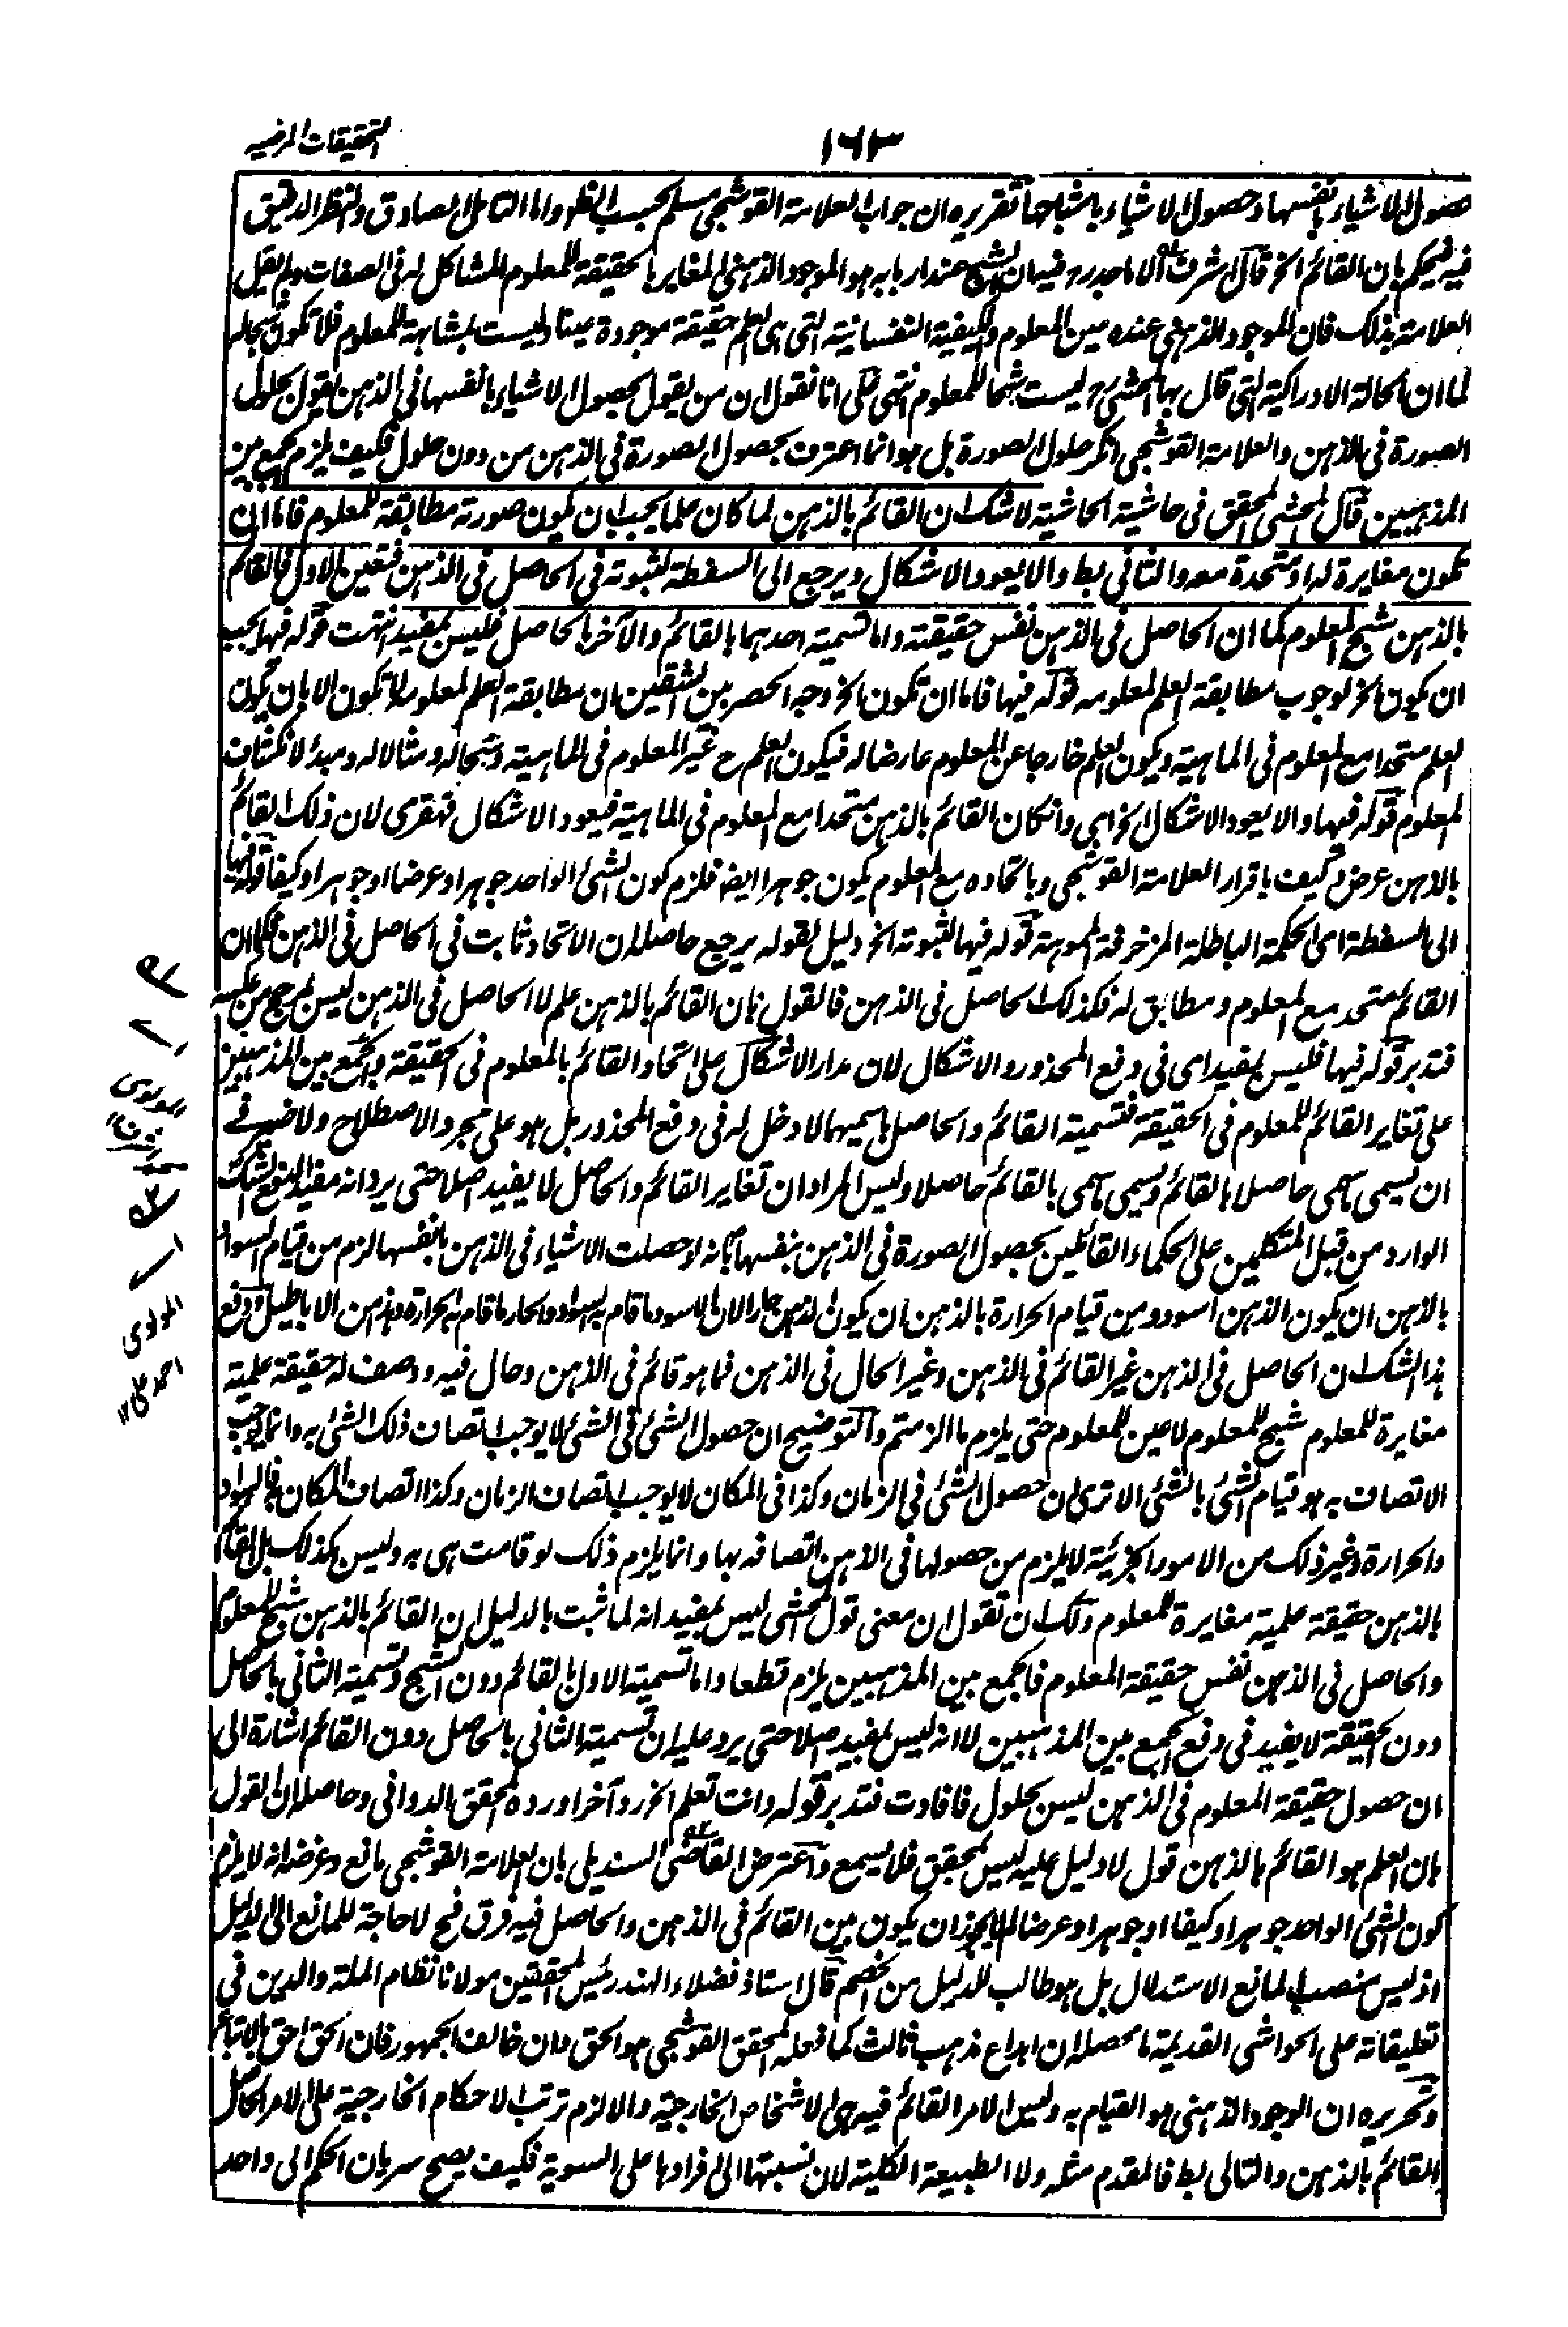 التحقيقات المرضيه
١٦٣
حصول الاشياء بانفسها وحصول الاشياء باشباحها تقريره ان جواب العلامة القوشجي مسلم بحسب الظهر واما التامل الصادق والنظر الدقيق
فيه فيحكم بان القائم الخ قال اشرف الاماجد ره فيه ان الشبح عند اربابه هو الموجود الذهني المغاير بالحقيقة للمعلوم المشاكل له في الصفات ولم يقل
العلامة بذلك فان الموجود الذهني عنده عين المعلوم والكيفية النفسانية التي هي العلم حقيقة موجودة عينا وليست بمشابهة للمعلوم فلا تكون شبحا له
كما ان الحالة الادراكية التي قال بها المحشي رح ليست شبحا للمعلوم انتهى على انا نقول ان من يقول بحصول الاشياء بانفسها في الذهن يقول بحلول
الصورة في الذهن والعلامة القوشجي انكر حلول الصورة بل هو انما اعترف بحصول الصورة في الذهن من دون حلول فكيف يلزم الجمع بين
المذهبين قال المحشي المحقق في حاشية الحاشية لا شك ان القائم بالذهن لما كان علما يجب ان يكون صورته مطابقة للمعلوم فاما ان
تكون مغايرة له او متحدة معه والثاني بط والا يعود الاشكال ويرجع الى السفسطة لثبوته في الحاصل في الذهن فتعين الاول فالقائم
بالذهن شبح المعلوم كما ان الحاصل في الذهن نفس حقيقته واما تسمية احدهما بالقائم والآخر بالحاصل فليس بمفيد انتهت قوله فيها يجب
ان يكون الخ لوجوب مطابقة العلم لمعلومه قوله فيها فاما ان تكون الخ وجه الحصر بين الشقين ان مطابقة العلم لمعلومه لا تكون الا بان يكون
العلم متحدا مع المعلوم في الماهية ويكون العلم خارجا عن المعلوم عارضا له فيكون العلم ح غير المعلوم في الماهية وشبحا له ومثالا له ومبدئ لانكشاف
المعلوم قوله فيها والا يعود الاشكال الخ اي وان كان القائم بالذهن متحدا مع المعلوم في الماهية فيعود الاشكال قهقرى لان ذلك القائم
بالذهن عرض وكيف باقرار العلامة القوشجي وباتحاده مع المعلوم يكون جوهرا ايضا فلزم كون الشئ الواحد جوهرا وعرضا او جوهرا وكيفا قوله فيها
الى السفسطة اي الحكمة الباطلة المزخرفة المموهة قوله فيها لثبوته الخ دليل لقوله يرجع حاصله ان الاتحاد ثابت في الحاصل في الذهن فكما ان
القائم متحد مع المعلوم ومطابق له فكذلك الحاصل في الذهن فالقول بان القائم بالذهن علم لا الحاصل في الذهن ليس ارجح من عكسه
فتدبر قوله فيها فليس بمفيد اي في دفع المحذور والاشكال لان مدار الاشكال على اتحاد القائم بالمعلوم في الحقيقة والجمع بين المذهبين
على تغاير القائم للمعلوم في الحقيقة فتسمية القائم والحاصل باسميهما لا دخل له في دفع المحذور بل هو على مجرد الاصطلاح ولا ضير في
ان يسمى ماهي حاصلا بالقائم ويسمى ماهي بالقائم حاصلا وليس المراد ان تغاير القائم والحاصل لا يفيد اصلا حتى يرد انه مفيد لدفع الشك
الوارد من قبل المتكلمين على الحكماء القائلين بحصول الصورة في الذهن بنفسها بانه لو حصلت الاشياء في الذهن بانفسها لزم من قيام السواد
بالذهن ان يكون الذهن اسود ومن قيام الحرارة بالذهن ان يكون الذهن حارا لان الاسود ما قام به السواد والحار ما قام به الحرارة وهذه من الاباطيل ودفع
هذا الشك ان الحاصل في الذهن غير القائم في الذهن وغير الحال في الذهن فما هو قائم في الذهن وحال فيه ووصف له حقيقة علمية
مغايرة للمعلوم شبح للمعلوم لا عين للمعلوم حتى يلزم ما الزمتم والتوضيح ان حصول الشئ في الشئ لا يوجب اتصاف ذلك الشئ به وانما يوجب
الاتصاف به هو قيام الشئ بالشئ الا ترى ان حصول الشئ في الزمان وكذا في المكان لا يوجب اتصاف الزمان وكذا اتصاف المكان به فالسواد
والحرارة وغير ذلك من الامور الجزئية لا يلزم من حصولها في الذهن اتصافه بها وانما يلزم ذلك لو قامت هي به وليس كذلك بل القائم
بالذهن حقيقة علمية مغايرة للمعلوم ولك ان تقول ان معنى قول المحشي ليس بمفيد انه لما ثبت بالدليل ان القائم بالذهن شبح للمعلوم
والحاصل في الذهن نفس حقيقة المعلوم فالجمع بين المذهبين يلزم قطعا واما تسمية الاول بالقائم دون الشبح وتسمية الثاني بالحاصل
دون الحقيقة لا يفيد في دفع الجمع بين المذهبين لا انه ليس بمفيد اصلا حتى يرد عليه ان تسمية الثاني بالحاصل دون القائم اشارة الى
ان حصول حقيقة المعلوم في الذهن ليس بحلول فافادت فتدبر قوله وانت تعلم الخ رد آخر اورده المحقق الدواني وحاصله ان القول
بان العلم هو القائم بالذهن قول لا دليل عليه ليس بمحقق فلا يسمع واعترض القاضي السنديلي بان العلامة القوشجي مانع وغرضه انه لا يلزم
كون الشئ الواحد جوهرا وكيفا او جوهرا وعرضا لم لا يجوز ان يكون بين القائم في الذهن والحاصل فيه فرق فح لا حاجة للمانع الى الدليل
اذ ليس منصب المانع الاستدلال بل هو طالب للدليل من الخصم قال استاذ فضلاء الهند رئيس المحققين مولانا نظام الملة والدين في
تعليقاته على الحواشي القديمة ما محصله ان ابداع مذهب ثالث كما فعله المحقق القوشجي هو الحق وان خالف الجمهور فان الحق احق بالاتباع
وتحريره ان الوجود الذهني هو القيام به وليس الامر القائم فيه هي الاشخاص الخارجية والا لزم ترتب الاحكام الخارجية على الامر الحاصل
القائم بالذهن والتالي بط فالمقدم مثله ولا الطبيعة الكلية لان نسبتها الى افرادها على السوية فكيف يصح سريان الحكم الى واحد